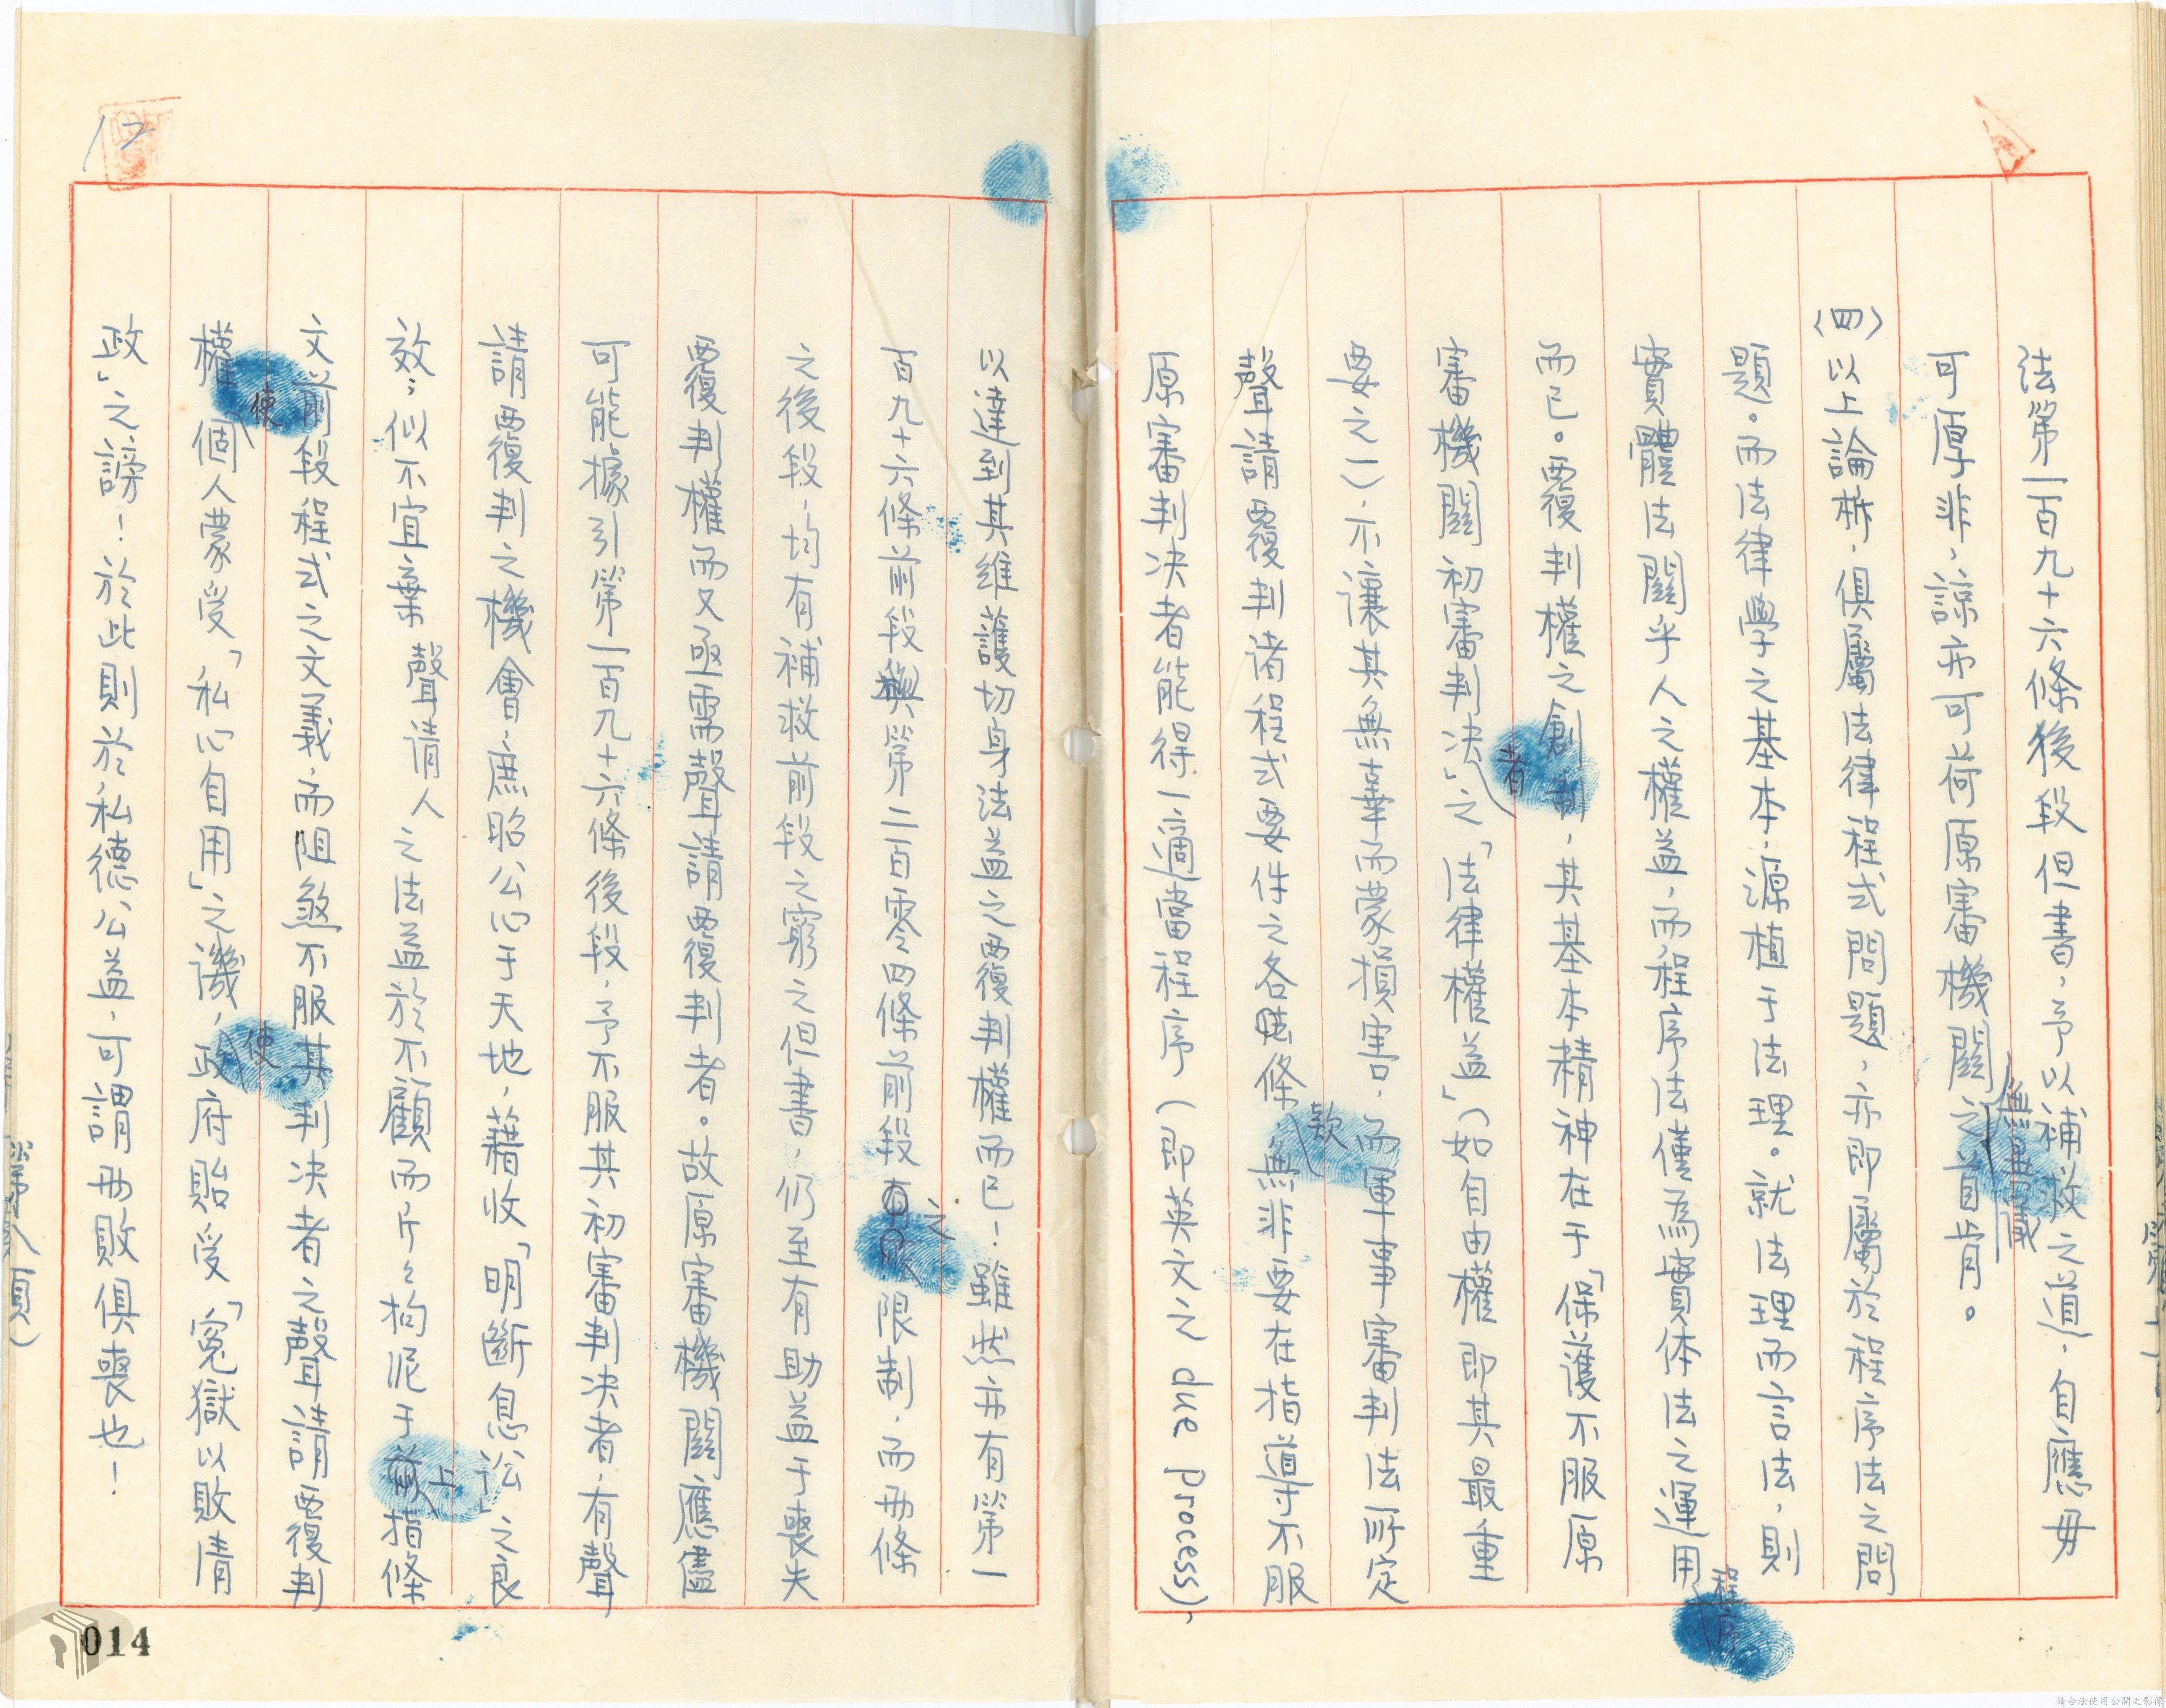 法第一百九十六條後段但書，予以補救之道，自應毋
可厚非，諒亦可荷原審機關無異議之首肯。
(四)以上論析，俱屬法律程式問題，亦即屬於程序法之問
題。而法律學之基本，源植于法理。就法理而言法，則
實體法關乎人之權益，而程序法僅為實体法之運用程序
而已。覆判權之創制者，其基本精神在于「保護不服原
審機關初審判決」之「法律權益」(如自由權即其最重
要之一)，不讓其無辜而蒙損害，而軍事審判法所定
聲請覆判諸程式要件之各條款無非要在指導不服
原審判決者能得一適當程序(即英文之due process)，
以達到其維護切身法益之覆判權而已！雖然亦有第一
百九十六條前段與第二百零四條前段之限制，而兩條
之後段，均有補救前段之窮之但書，仍至有助益于喪失
覆判權而又亟需聲請覆判者。故原審機關應儘
可能據引第一百九十六條後段，予不服其初審判決者，有聲
請覆判之機會，庶昭公心于天地，藉收「明斷息訟」之良
效；似不宜棄聲請人之法益於不顧而斤々拘泥于上指條
文前段程式之文義，而阻煞不服其判決者之聲請覆判
權，使個人蒙受「私心自用」之譏，使政府貽受「冤獄以敗情
政」之謗！於此則於私德公益，可謂兩敗俱喪也！
17
014
請合法使用公開之影像